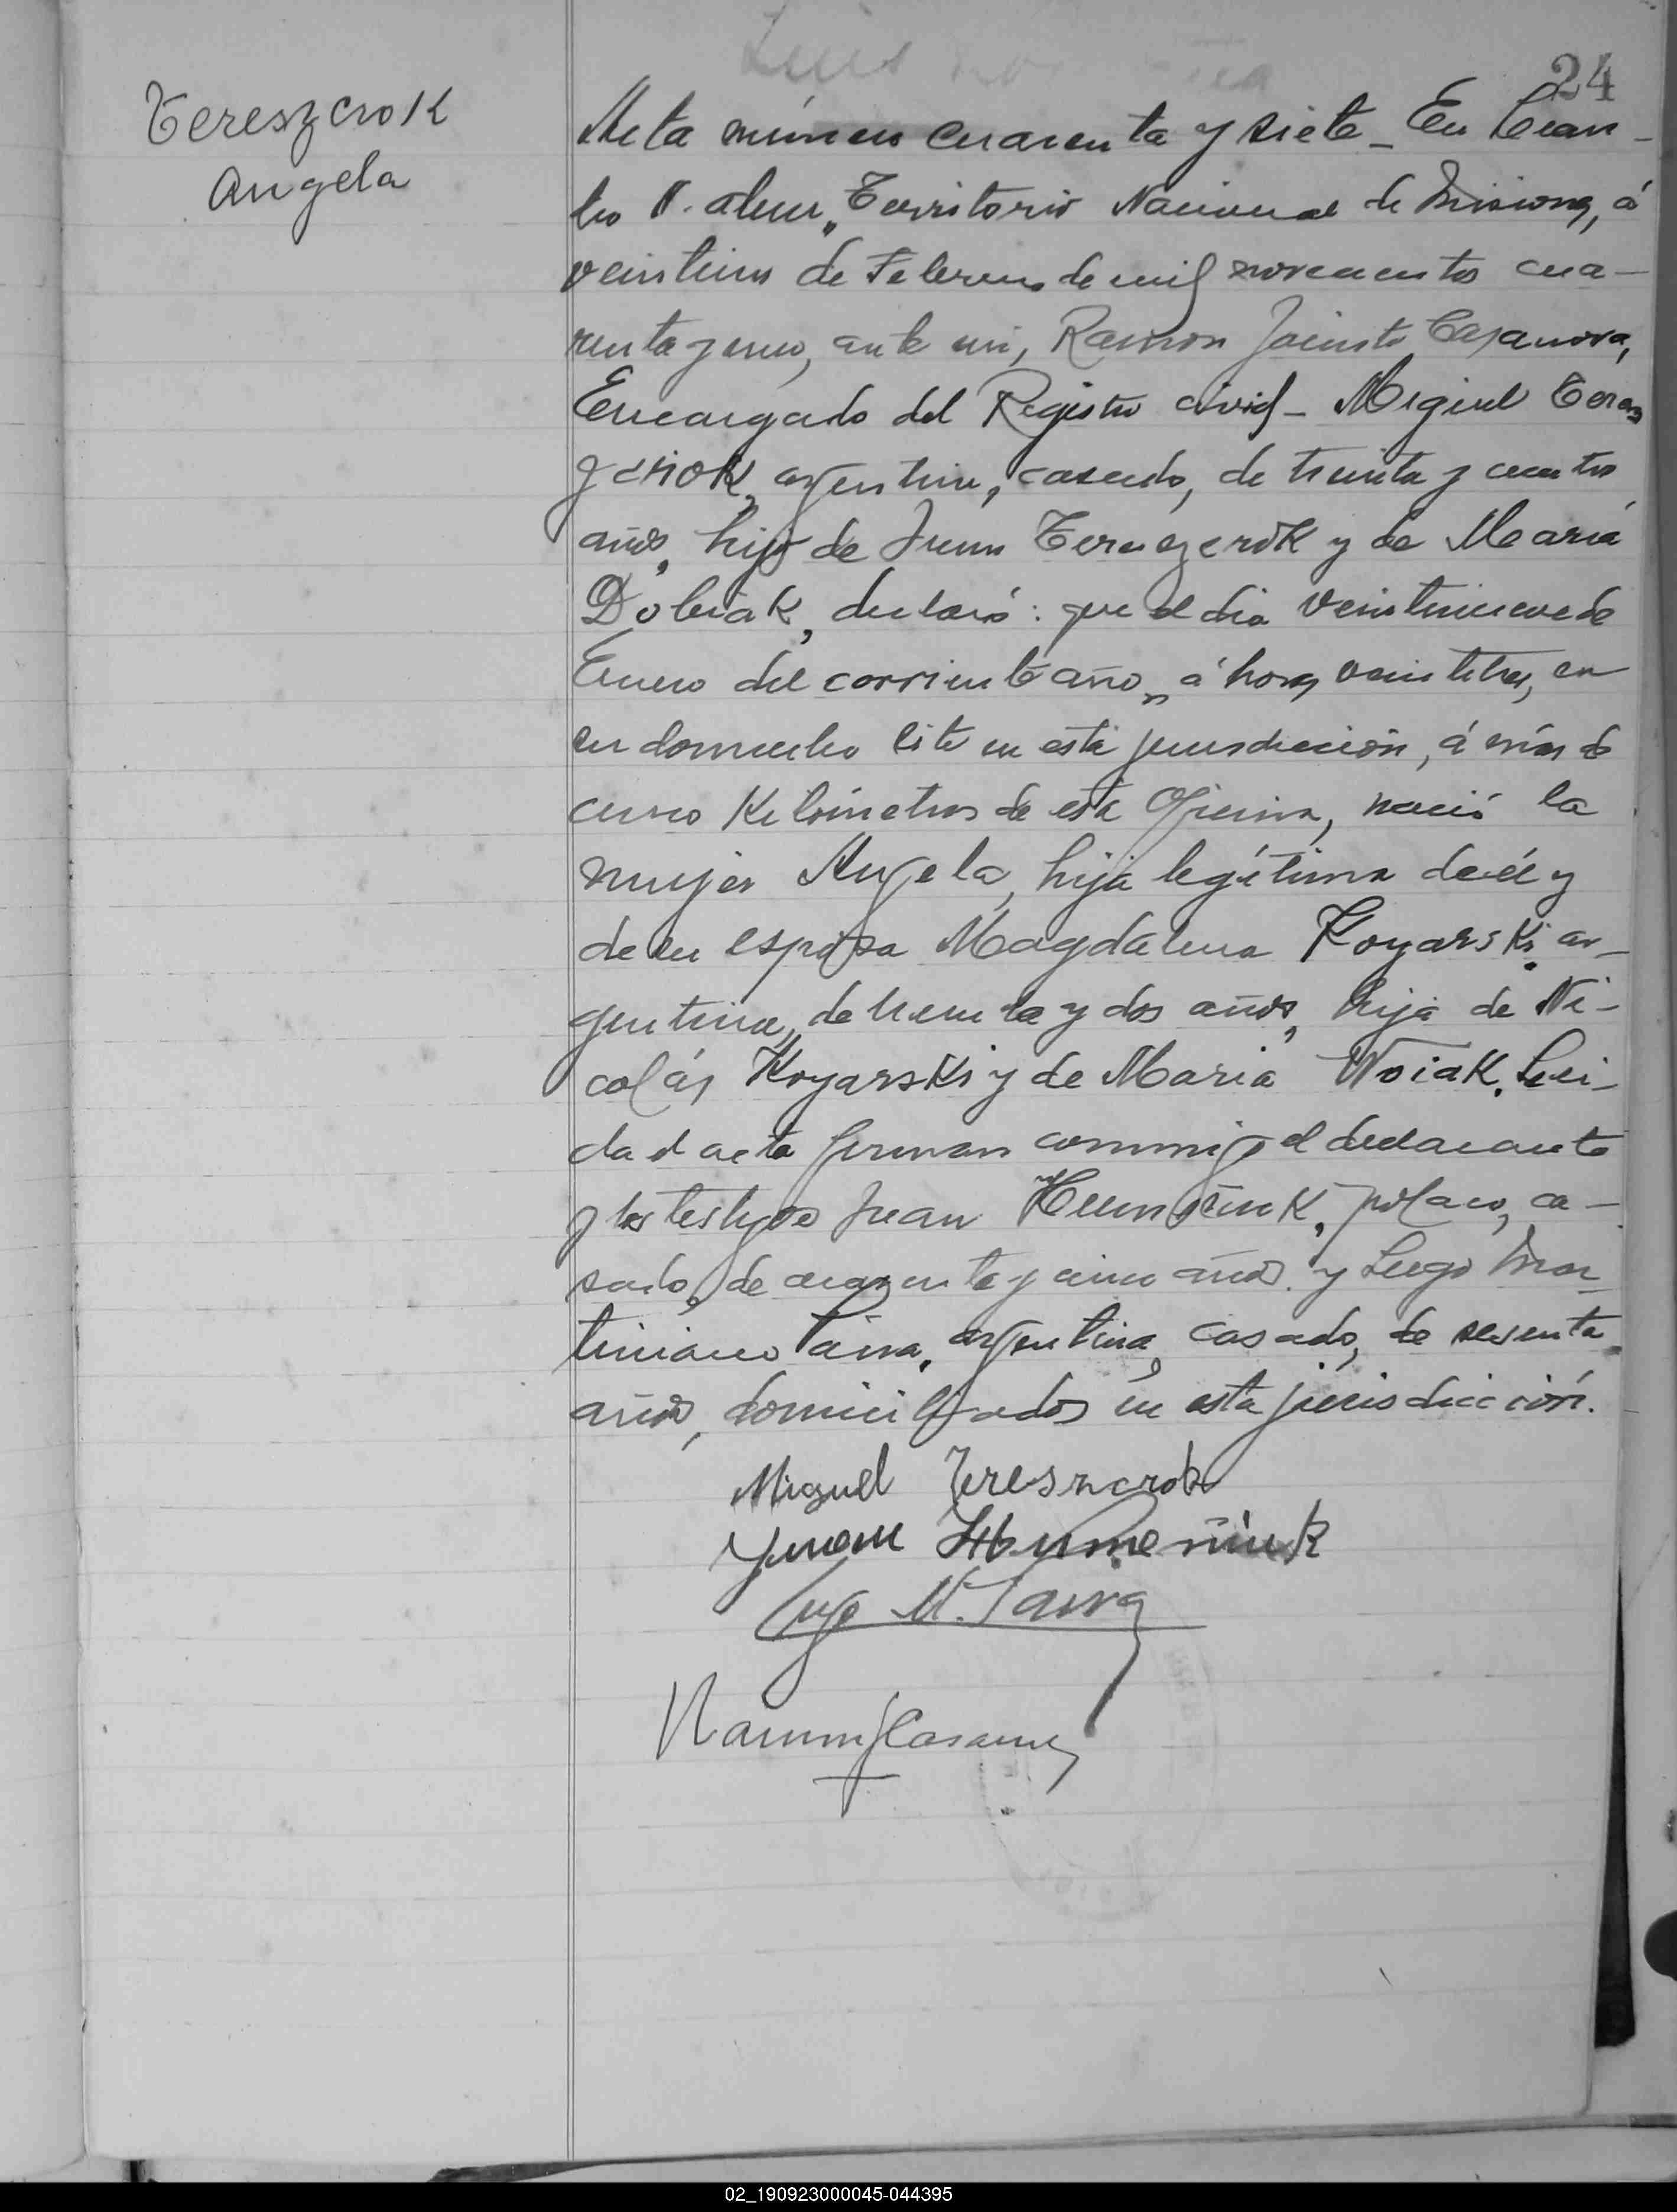 24
Tereszcrok
Angela
Acta número cuarenta y siete _ En Cean-
bo N. alem, Territorio Nacional de Misiones, á
veintiuno de Febrero de mil novecientos cua-
renta y uno, ante mi, Ramon Jacinto Casanova,
Encargado del Registro civil - Miguel Teres
zcrok, argentino, casado, de treinta y cuatro
años, hijo de Juan Tereszcrok y de María
Dobiak, declaró: que el dia veintinueve de
Enero del corriente año, á horas veintitres, en
su domicilio sito en esta jurisdicción, á más de
cinco Kilómetros de esta Oficina, nació la
mujer Angela, hija legítima de él y
de su esposa Magdalena Koyarski, ar-
gentina, de treinta y dos años, hija de Ni-
colás Koyarski y de Maria Woiak. Leí-
da el acta firman conmigo el declarante
y los testigos Juan Humeñiuk, polaco, ca-
sado, de cuarenta y cinco años y Lugo Mar-
tiniano Paiva, argentino, casado, de sesenta
años, domiciliados en esta jurisdicción.
Miguel Tereszcrok
Juan Humeñiuk
Lugo M. Paiva
Ramon J Casanova
02_190923000045-044395